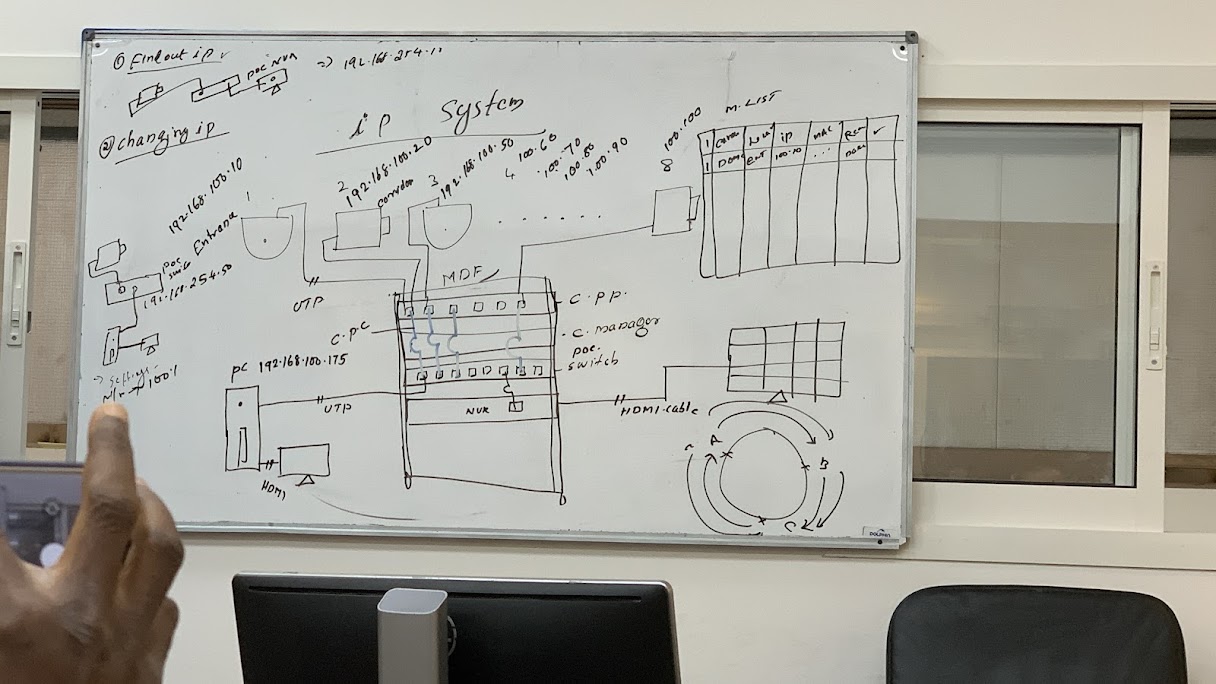 ① Find out ip ✓
poc NVR
⇒ 192.168.254.11
② changing ip
ip System
192.168.100.10
1
Entrance
2
192.168.100.20
corridor
3
192.168.100.50
4
100.60
100.70
100.80
100.90
8
100.100
M.LIST
1 ip MAC ✓
1 Dome ENT 100.10 ...
poc
switch
192.168.254.50
⇒ settings
100%
UTP
MDF
C.P.P.
C.P.C
C.Manager
poc.
switch
PC 192.168.100.175
UTP
NVR
HDMI.cable
HDMI
A
B
C
DOLPHIN